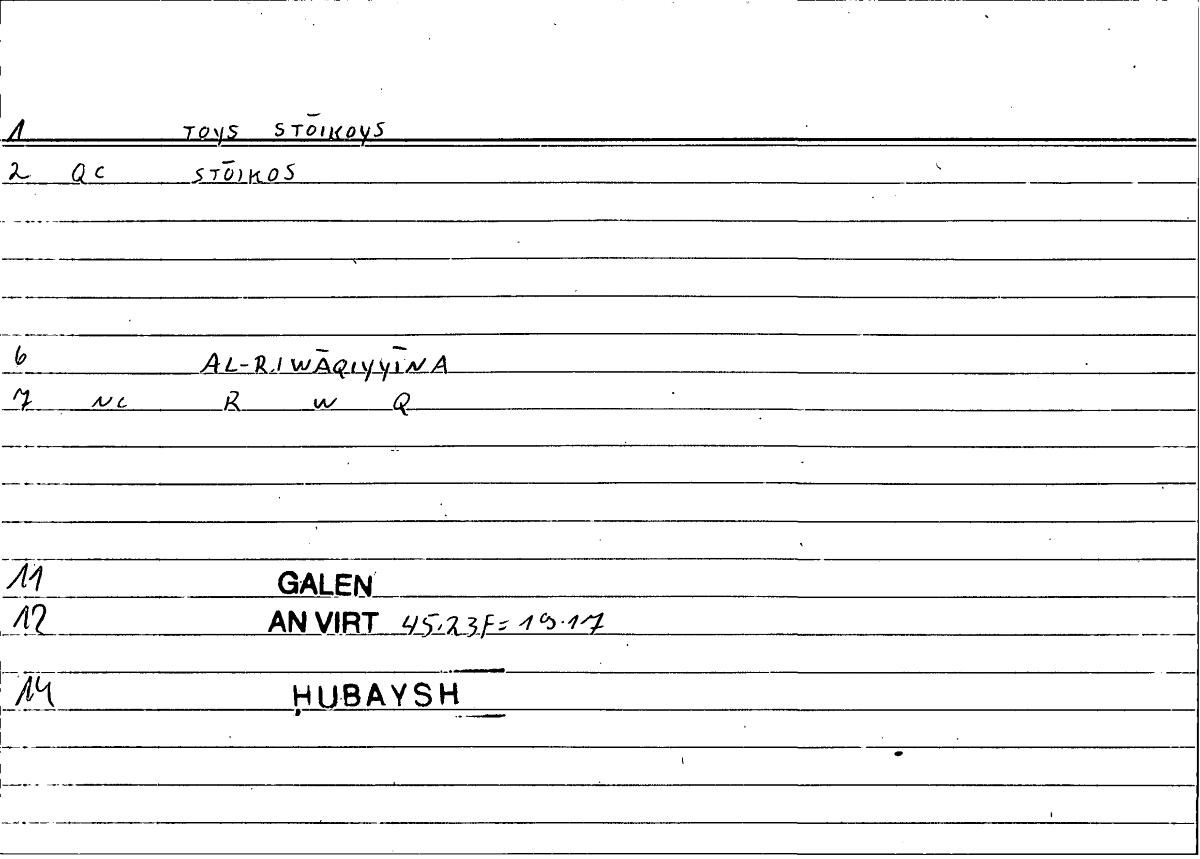 1 TOYS STŌIKOYS
2 QC STŌIKOS
6 AL-RIWĀQIYYĪNA
7 NC R W Q
11 GALEN
12 AN VIRT 45.23F=19.17
14 ḤUBAYSH